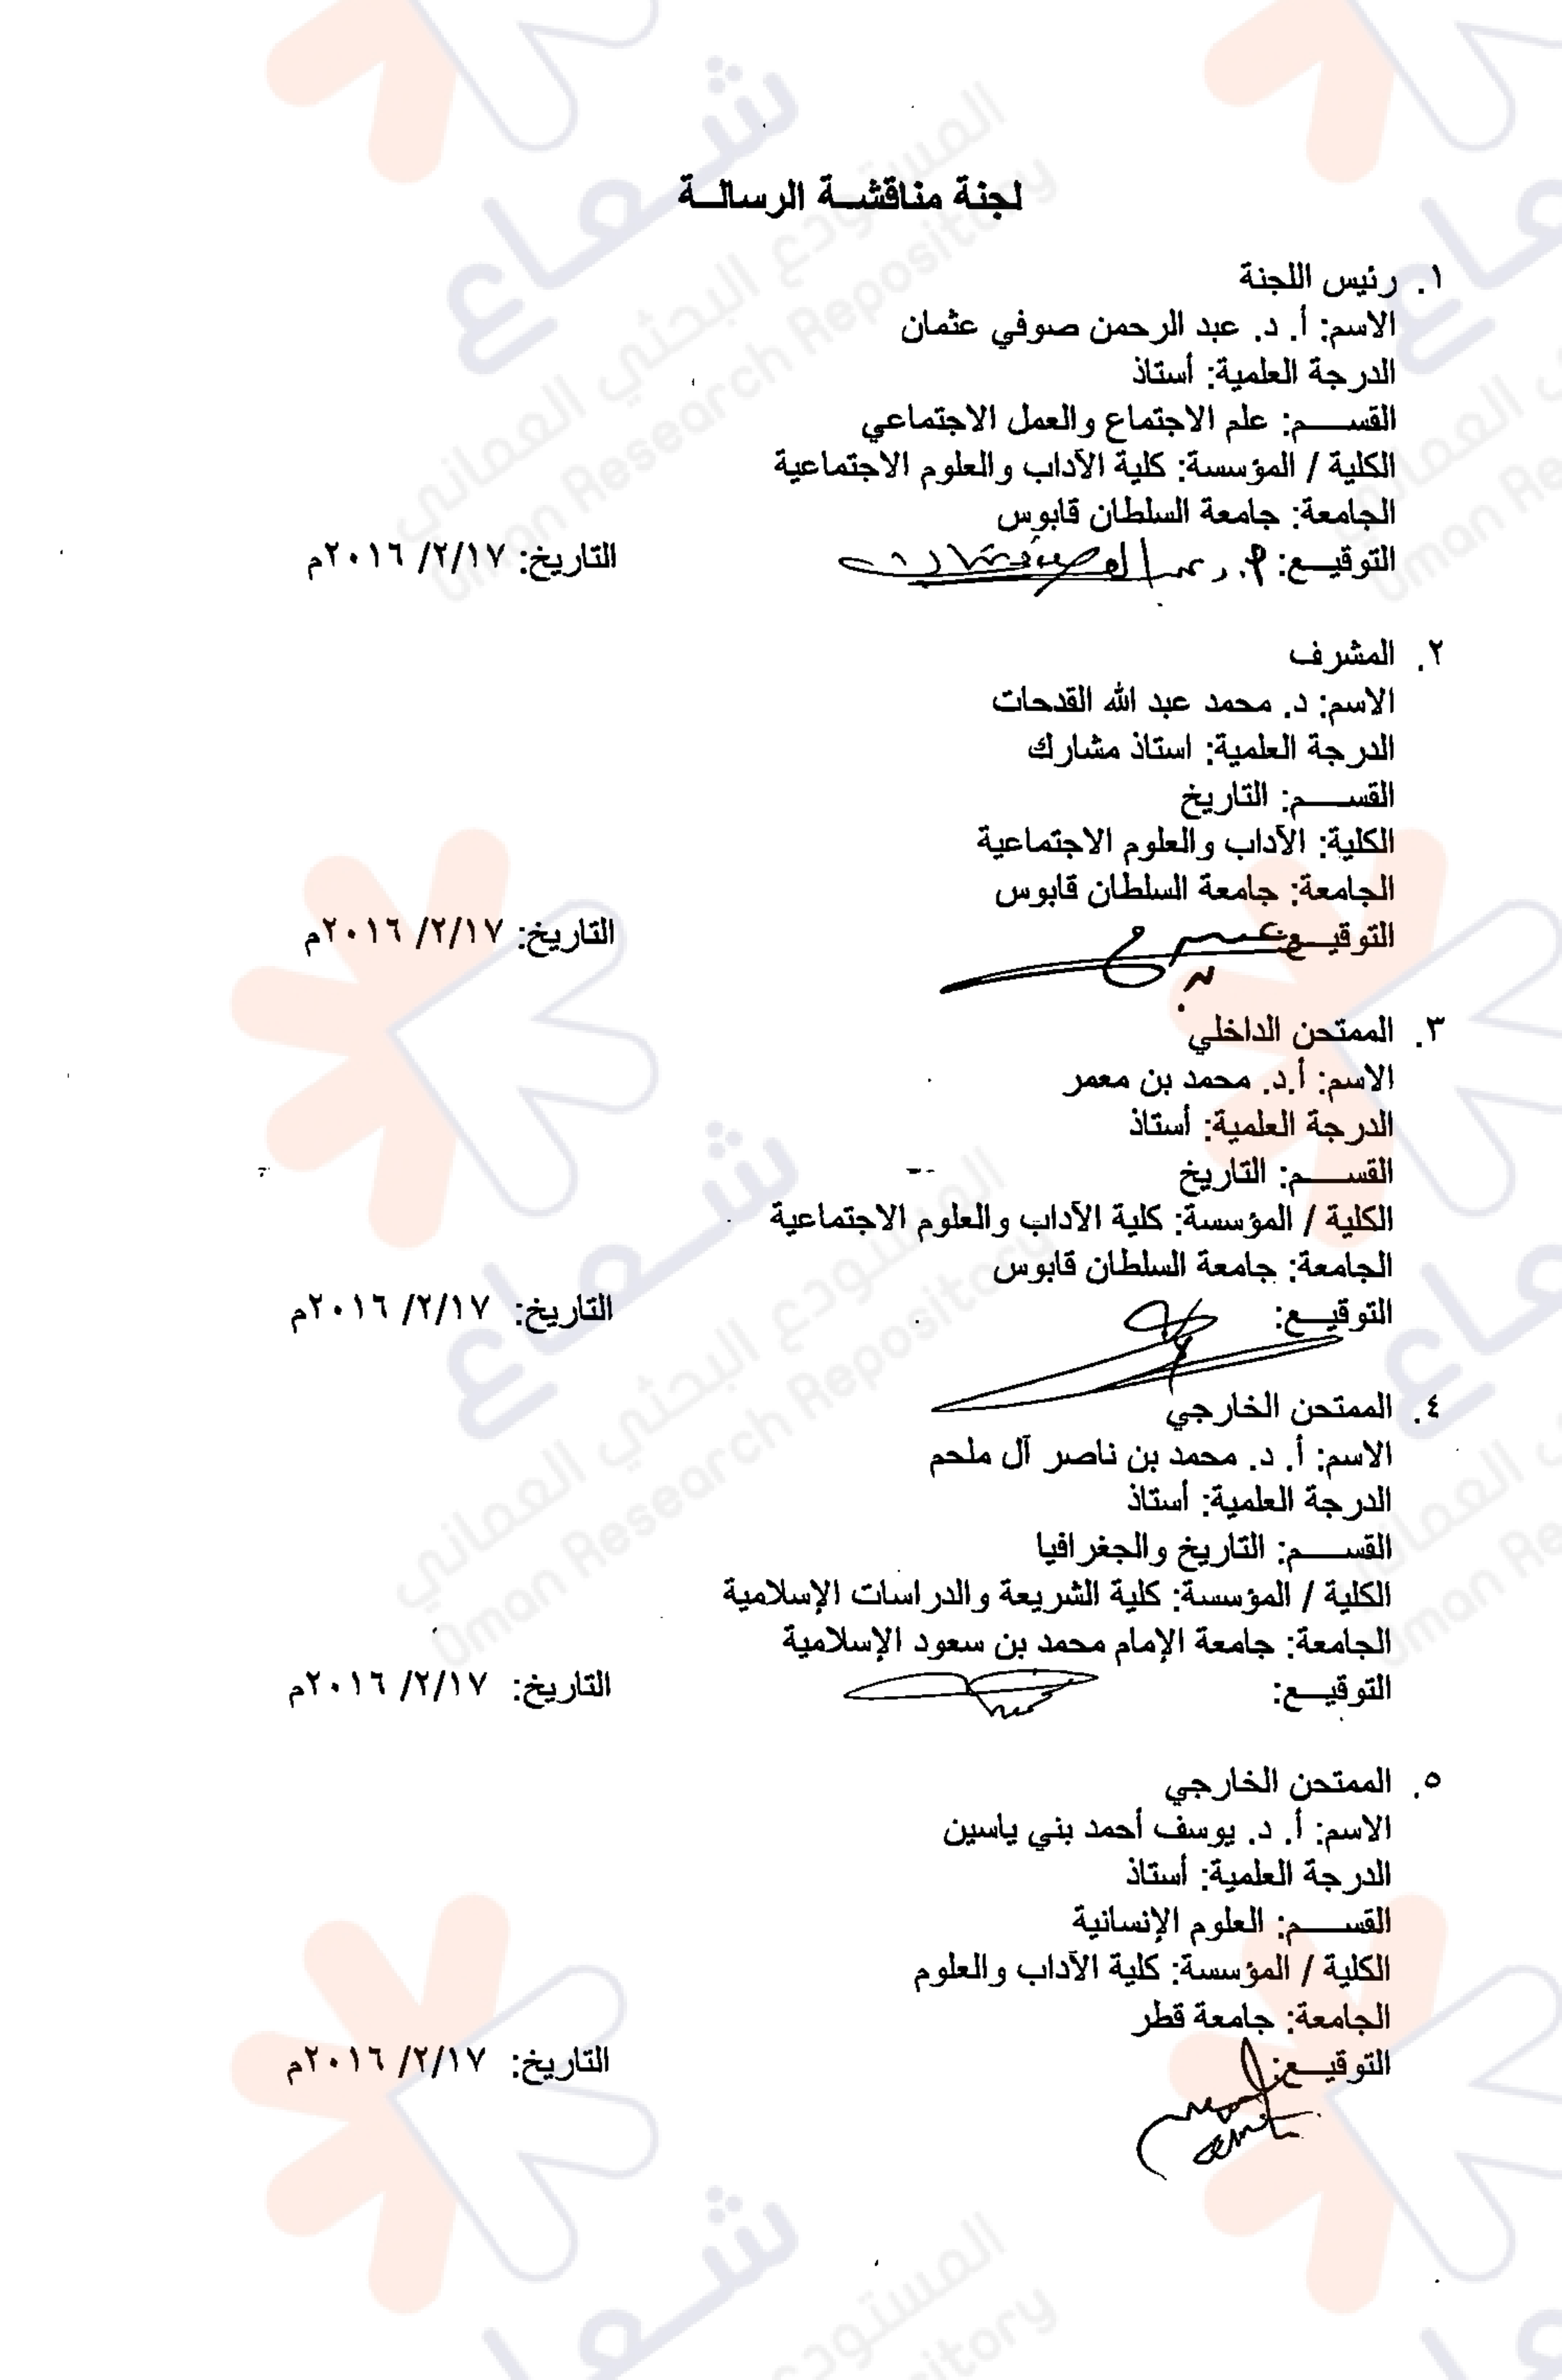 لجنة مناقشة الرسالة
١. رئيس اللجنة
الاسم: أ. د. عبد الرحمن صوفي عثمان
الدرجة العلمية: أستاذ
القسم: علم الاجتماع والعمل الاجتماعي
الكلية / المؤسسة: كلية الآداب والعلوم الاجتماعية
الجامعة: جامعة السلطان قابوس
التوقيع: التاريخ: ٢/١٧/ ٢٠١٦م
٢. المشرف
الاسم: د. محمد عبد الله القدحات
الدرجة العلمية: استاذ مشارك
القسم: التاريخ
الكلية: الآداب والعلوم الاجتماعية
الجامعة: جامعة السلطان قابوس
التوقيع التاريخ: ٢/١٧/ ٢٠١٦م
٣. الممتحن الداخلي
الاسم: أ.د. محمد بن معمر
الدرجة العلمية: أستاذ
القسم: التاريخ
الكلية / المؤسسة: كلية الآداب والعلوم الاجتماعية
الجامعة: جامعة السلطان قابوس
التوقيع: التاريخ: ٢/١٧/ ٢٠١٦م
٤. الممتحن الخارجي
الاسم: أ. د. محمد بن ناصر آل ملحم
الدرجة العلمية: أستاذ
القسم: التاريخ والجغرافيا
الكلية / المؤسسة: كلية الشريعة والدراسات الإسلامية
الجامعة: جامعة الإمام محمد بن سعود الإسلامية
التوقيع: التاريخ: ٢/١٧/ ٢٠١٦م
٥. الممتحن الخارجي
الاسم: أ. د. يوسف أحمد بني ياسين
الدرجة العلمية: أستاذ
القسم: العلوم الإنسانية
الكلية / المؤسسة: كلية الآداب والعلوم
الجامعة: جامعة قطر
التوقيع: التاريخ: ٢/١٧/ ٢٠١٦م
شعاع
المستودع البحثي العماني
Oman Research Repository